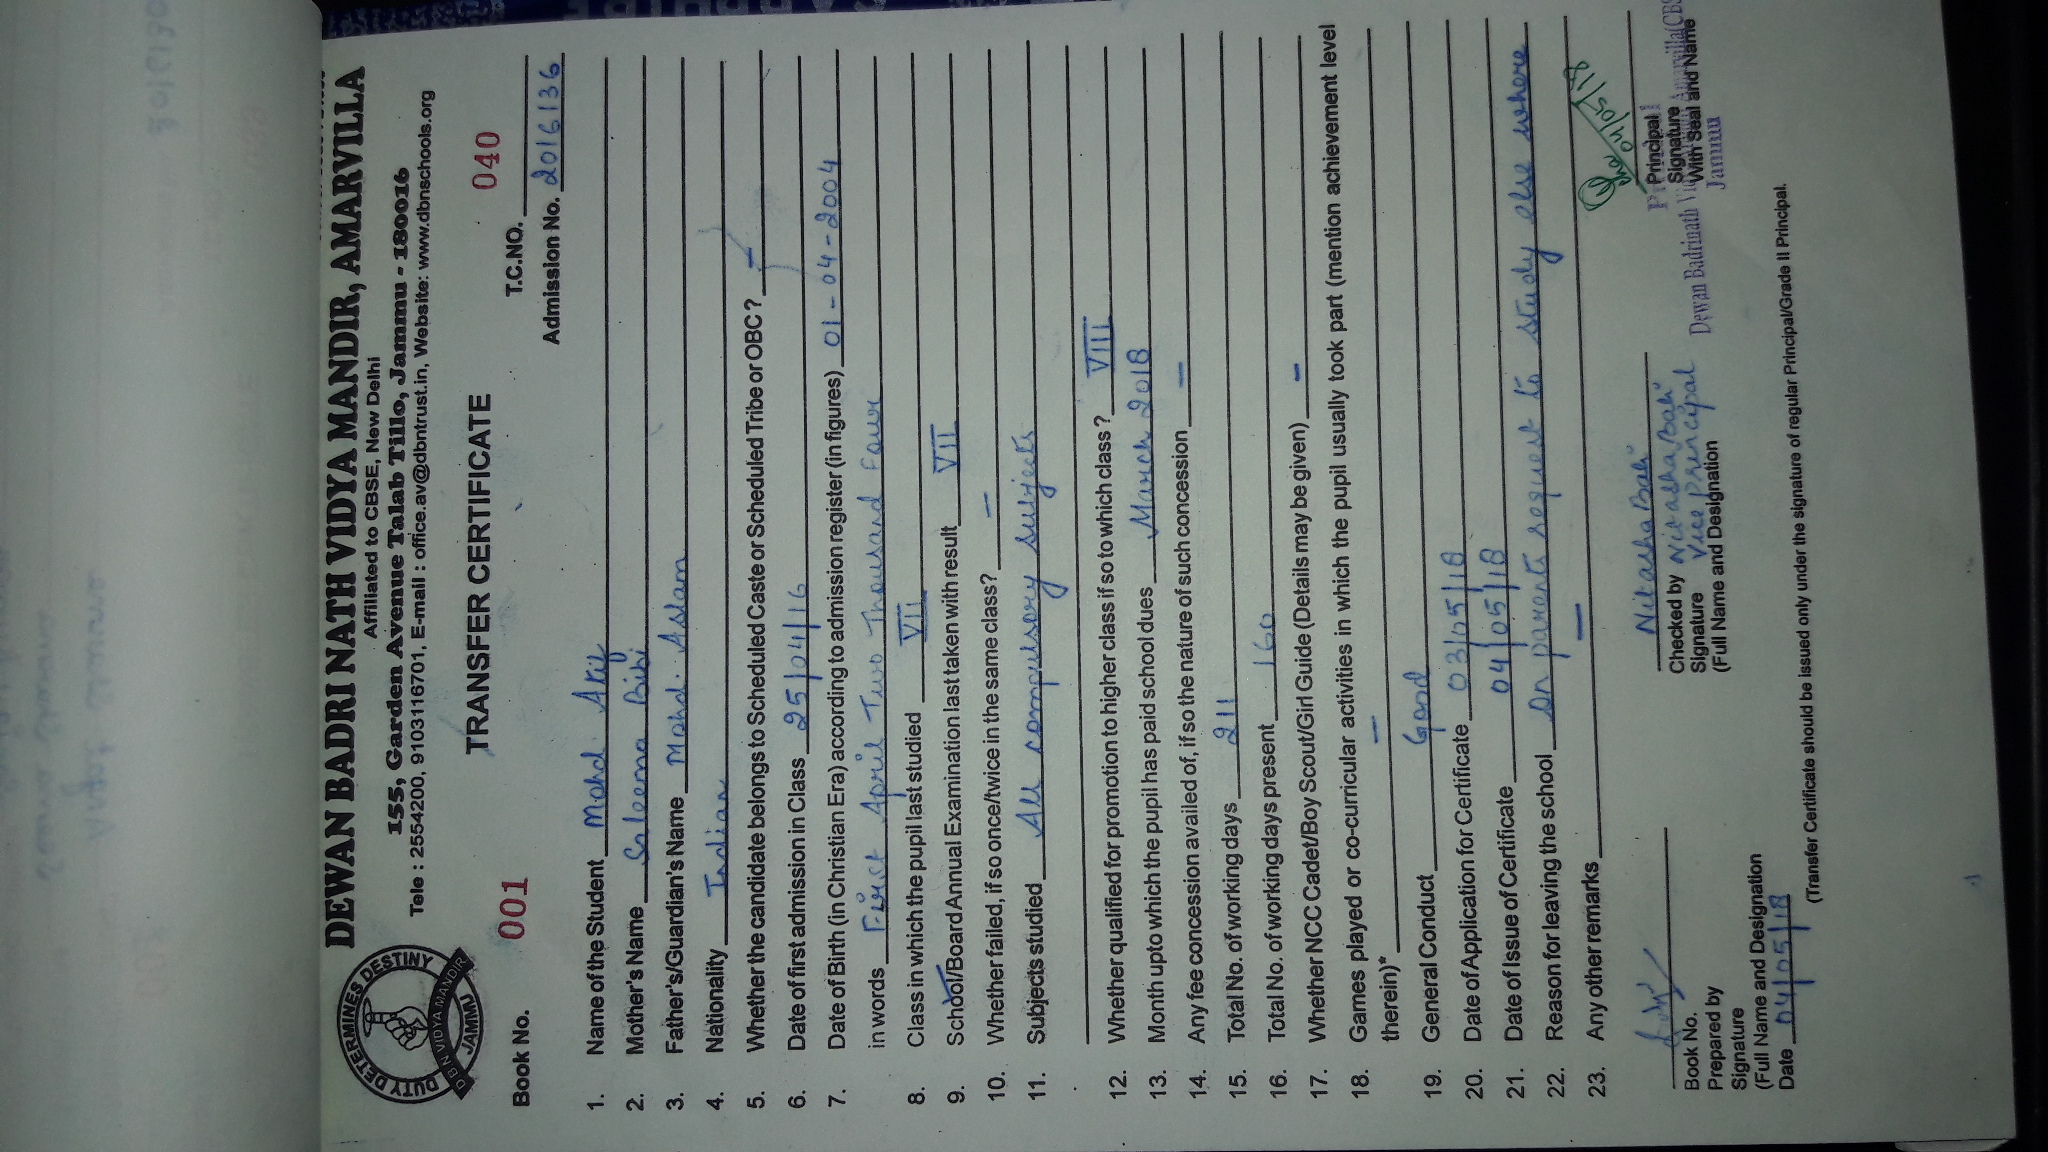 DEWAN BADRI NATH VIDYA MANDIR, AMARVILLA
Affiliated to CBSE, New Delhi
155, Garden Avenue Talab Tillo, Jammu - 180016
Tele : 2554200, 9103116701, E-mail : office.av@dbntrust.in, Website: www.dbnschools.org
DUTY DETERMINES DESTINY
DBN VIDYA MANDIR
JAMMU
TRANSFER CERTIFICATE
Book No. 001 T.C.NO. 040
Admission No. 2016136
1. Name of the Student Mohd. Arif
2. Mother's Name Saleema Bibi
3. Father's/Guardian's Name Mohd. Aslam
4. Nationality Indian
5. Whether the candidate belongs to Scheduled Caste or Scheduled Tribe or OBC? —
6. Date of first admission in Class 25/04/16
7. Date of Birth (in Christian Era) according to admission register (in figures) 01-04-2004
in words First April Two Thousand Four
8. Class in which the pupil last studied VII
9. School/Board Annual Examination last taken with result VII
10. Whether failed, if so once/twice in the same class? —
11. Subjects studied All compulsory subjects
12. Whether qualified for promotion to higher class if so to which class? VIII
13. Month upto which the pupil has paid school dues March 2018
14. Any fee concession availed of, if so the nature of such concession —
15. Total No. of working days 211
16. Total No. of working days present 160
17. Whether NCC Cadet/Boy Scout/Girl Guide (Details may be given) —
18. Games played or co-curricular activities in which the pupil usually took part (mention achievement level
therein)* —
19. General Conduct Good
20. Date of Application for Certificate 03/05/18
21. Date of Issue of Certificate 04/05/18
22. Reason for leaving the school On parents request to study else where
23. Any other remarks —
Book No.
Prepared by
Signature
(Full Name and Designation
Date 04/05/18
Nitasha Bali
Checked by Nitasha Bali
Signature Vice Principal
(Full Name and Designation
04/05/18
Principal
Signature
With Seal and Name
Dewan Badrinath
Jammu
(Transfer Certificate should be issued only under the signature of regular Principal/Grade II Principal.